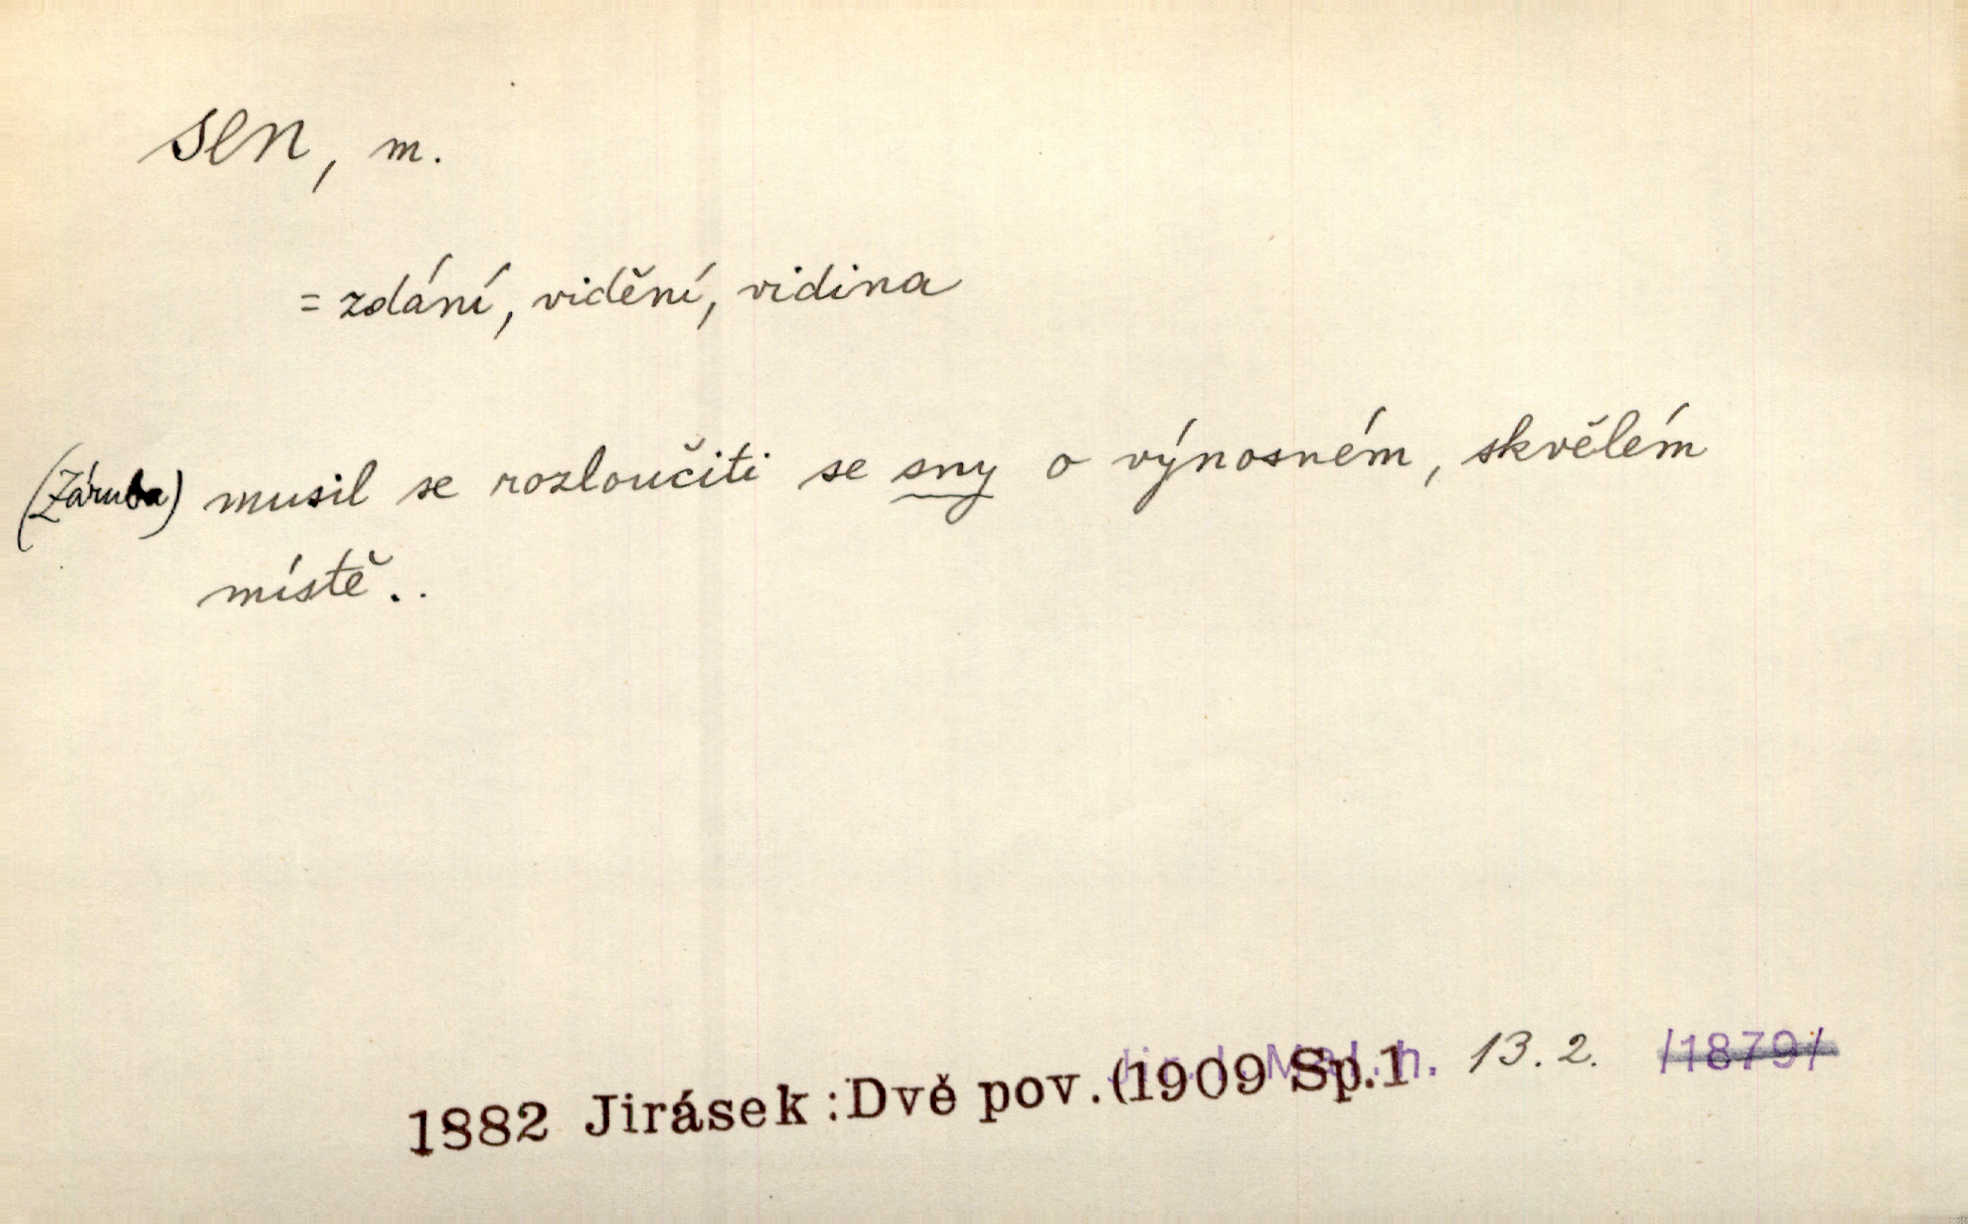 sen, m.
= zdání, vidění, vidina
(Záruba) musil se rozloučiti se sny o výnosném, skvělém
místě..
13. 2. /1879/
1882 Jirásek: Dvě pov. (1909 Sp.1